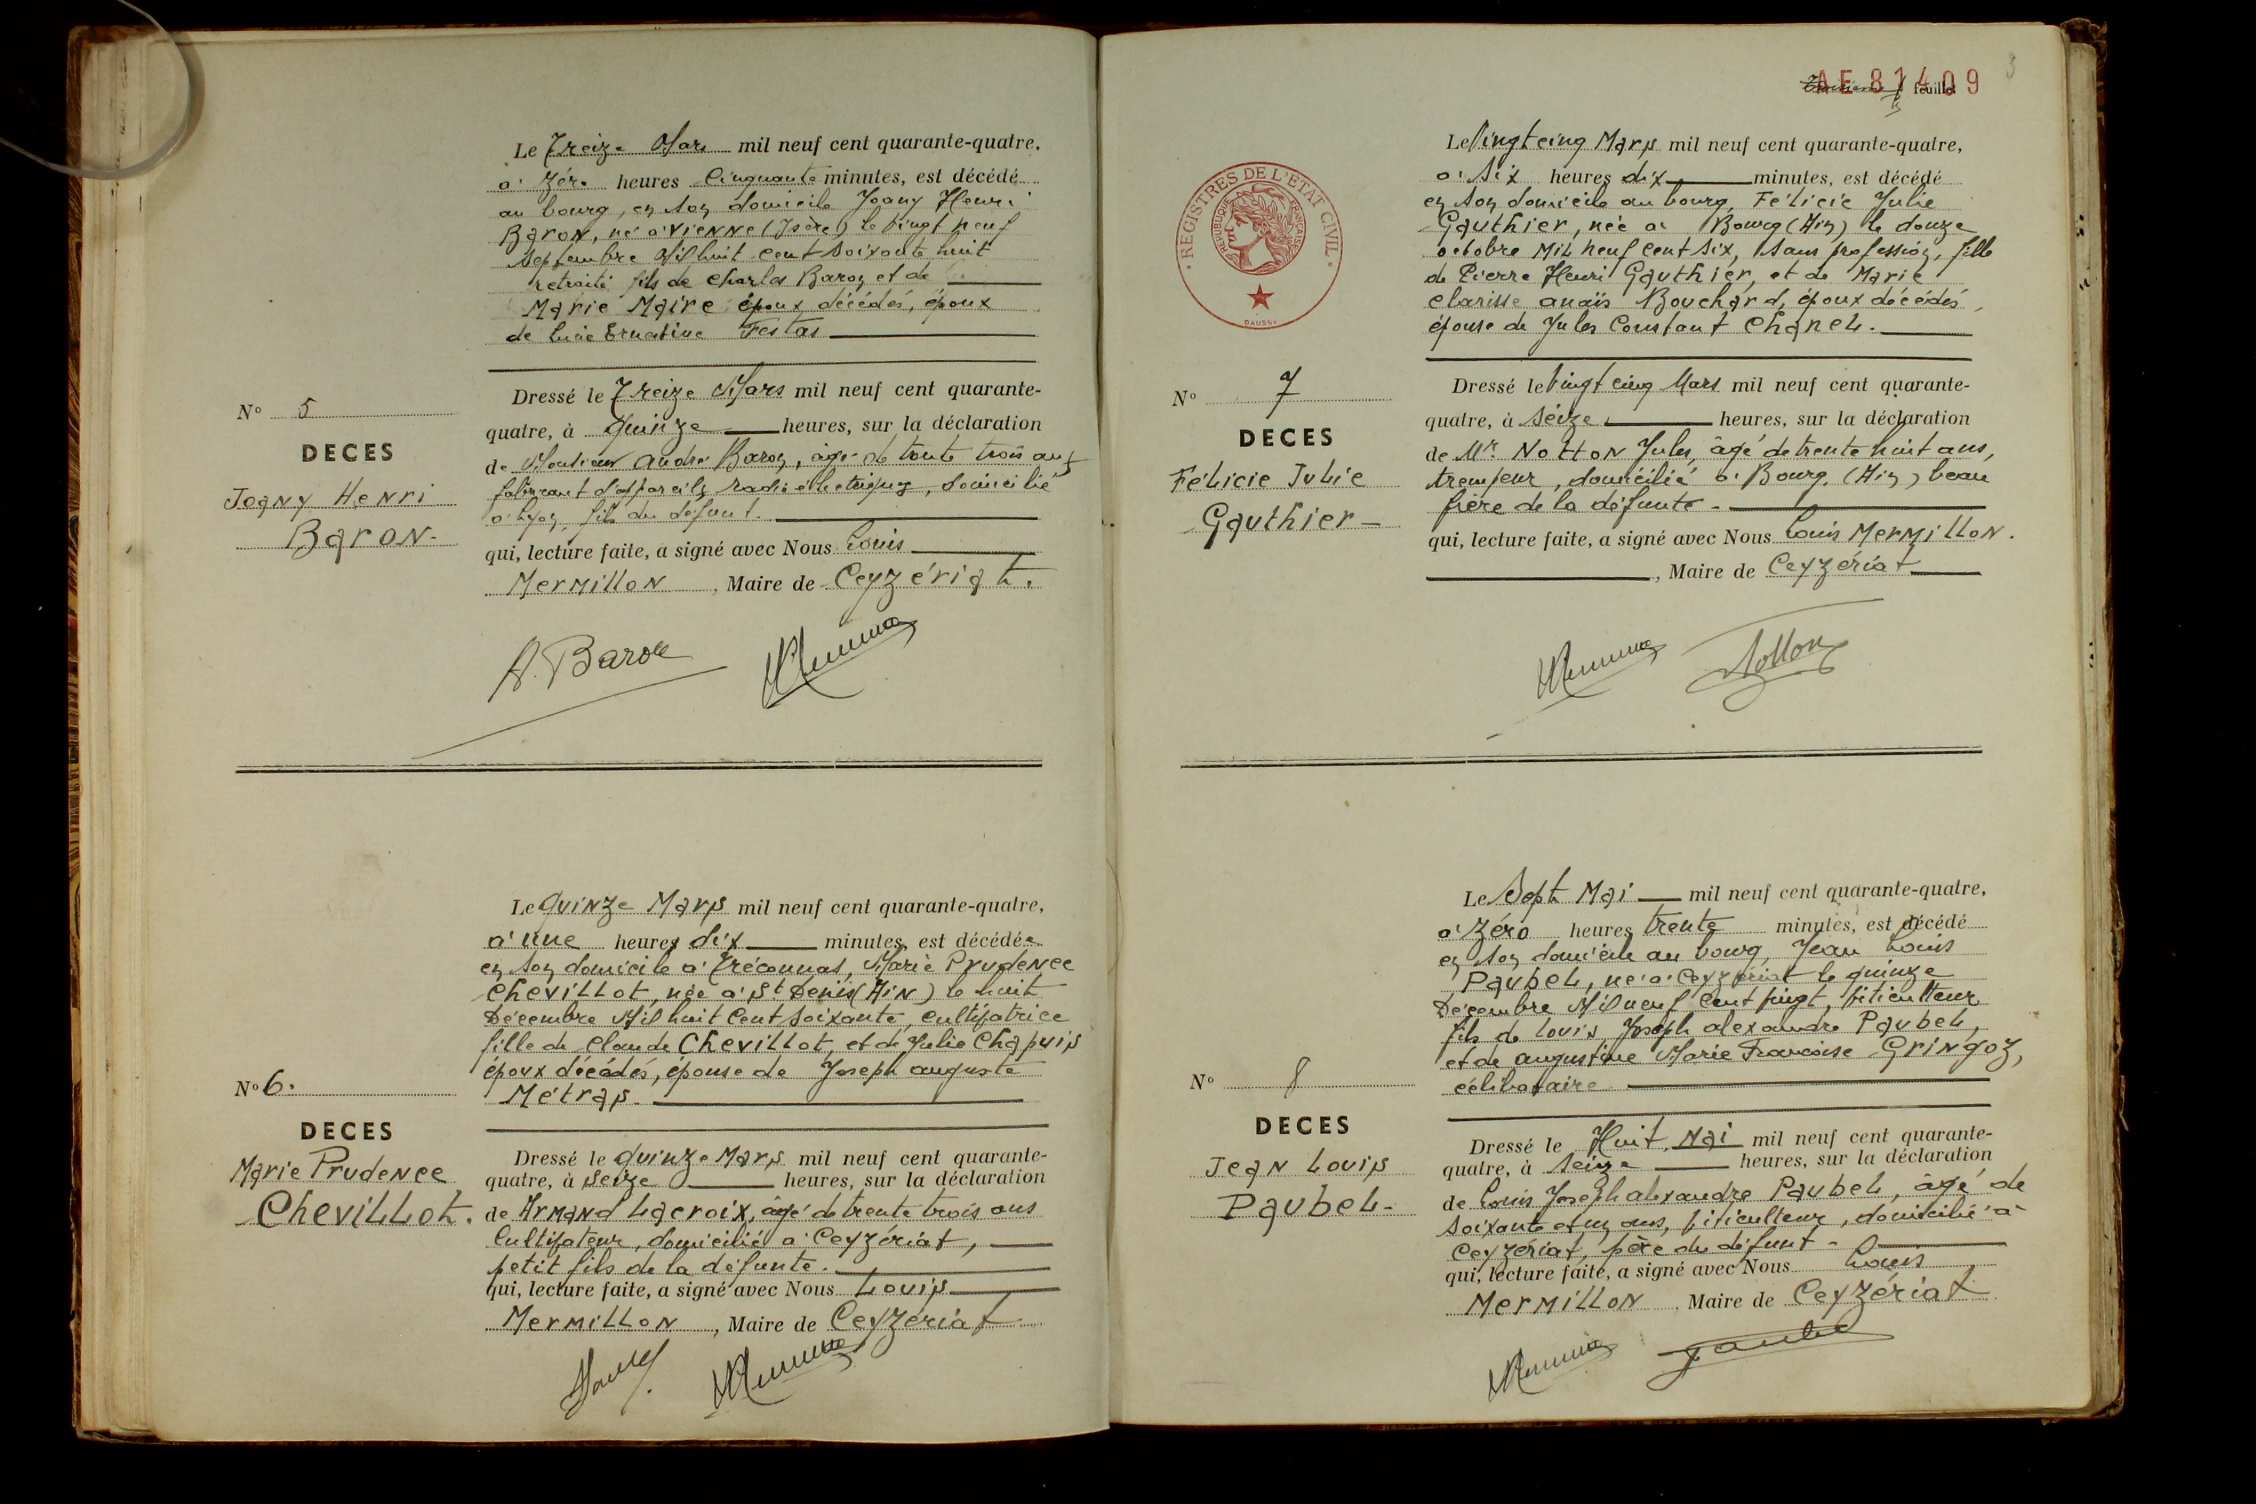 Le Treize Mars mil neuf cent quarante-quatre,
à zéro heures Cinquante minutes, est décédé
au bourg, en son domicile Joany Henri
Baron, né à Vienne (Isère) le vingt neuf
septembre Mil huit cent soixante huit
retraité, fils de Charles Baron et de
Marie Maire époux décédés, époux
de Lucie Ernestine Festas
N° 5
DECES
Joany Henri
Baron-
Dressé le Treize Mars mil neuf cent quarante-
quatre, à quinze heures, sur la déclaration
de Monsieur André Baron, âgé de trente trois ans
fabricant d'appareils radio électriques, domicilié
à Lyon, fils du défunt.
qui, lecture faite, a signé avec Nous Louis
Mermillon, Maire de Ceyzériat.
A. Baron
Le quinze Mars mil neuf cent quarante-quatre,
à une heures dix minutes, est décédée
en son domicile à Tréconnas, Marie Prudence
Chevillot, née à St Denis (Ain) le huit
Décembre Mil huit Cent soixante, cultivatrice
fille de Claude Chevillot, et de Julie Chapuis
époux décédés, épouse de Joseph auguste
Métras.
N° 6.
DECES
Marie Prudence
Chevillot.
Dressé le quinze Mars mil neuf cent quarante-
quatre, à seize heures, sur la déclaration
de Armand Lacroix, âgé de trente trois ans
Cultivateur, domicilié à Ceyzériat,
petit fils de la défunte.
qui, lecture faite, a signé avec Nous Louis
Mermillon, Maire de Ceyzériat
AE 81409
feuillet
3
REGISTRES DE L'ETAT CIVIL
REPUBLIQUE FRANÇAISE
DAUSSY
Le Vingt cinq Mars mil neuf cent quarante-quatre,
à six heures dix minutes, est décédé
en son domicile au bourg, Félicie Julie
Gauthier, née à Bourg (Ain) le douze
octobre Mil neuf cent six, sans profession, fille
de Pierre Henri Gauthier, et de Marie
Clarisse anaïs Bouchard, époux décédés,
épouse de Jules Constant Chanel.
N° 7
DECES
Félicie Julie
Gauthier-
Dressé le vingt cinq Mars mil neuf cent quarante-
quatre, à seize heures, sur la déclaration
de Mr. Notton Jules, âgé de trente huit ans,
trempeur, domicilié à Bourg, (Ain) beau
frère de la défunte-
qui, lecture faite, a signé avec Nous Louis Mermillon.
, Maire de Ceyzériat
Notton
Le Sept Mai mil neuf cent quarante-quatre,
à zéro heures trente minutes, est décédé
en son domicile au bourg, Jean Louis
Paubel, né à Ceyzériat le quinze
Décembre Mil neuf Cent vingt, viticulteur
fils de Louis Joseph alexandre Paubel,
et de augustine Marie Francoise Gringoz,
célibataire
N° 8
DECES
Jean Louis
Paubel-
Dressé le Huit Mai mil neuf cent quarante-
quatre, à seize heures, sur la déclaration
de Louis Joseph alexandre Paubel, âgé de
soixante et un ans, viticulteur, domicilié à
Ceyzériat, père du défunt-
qui, lecture faite, a signé avec Nous Louis
Mermillon, Maire de Ceyzériat